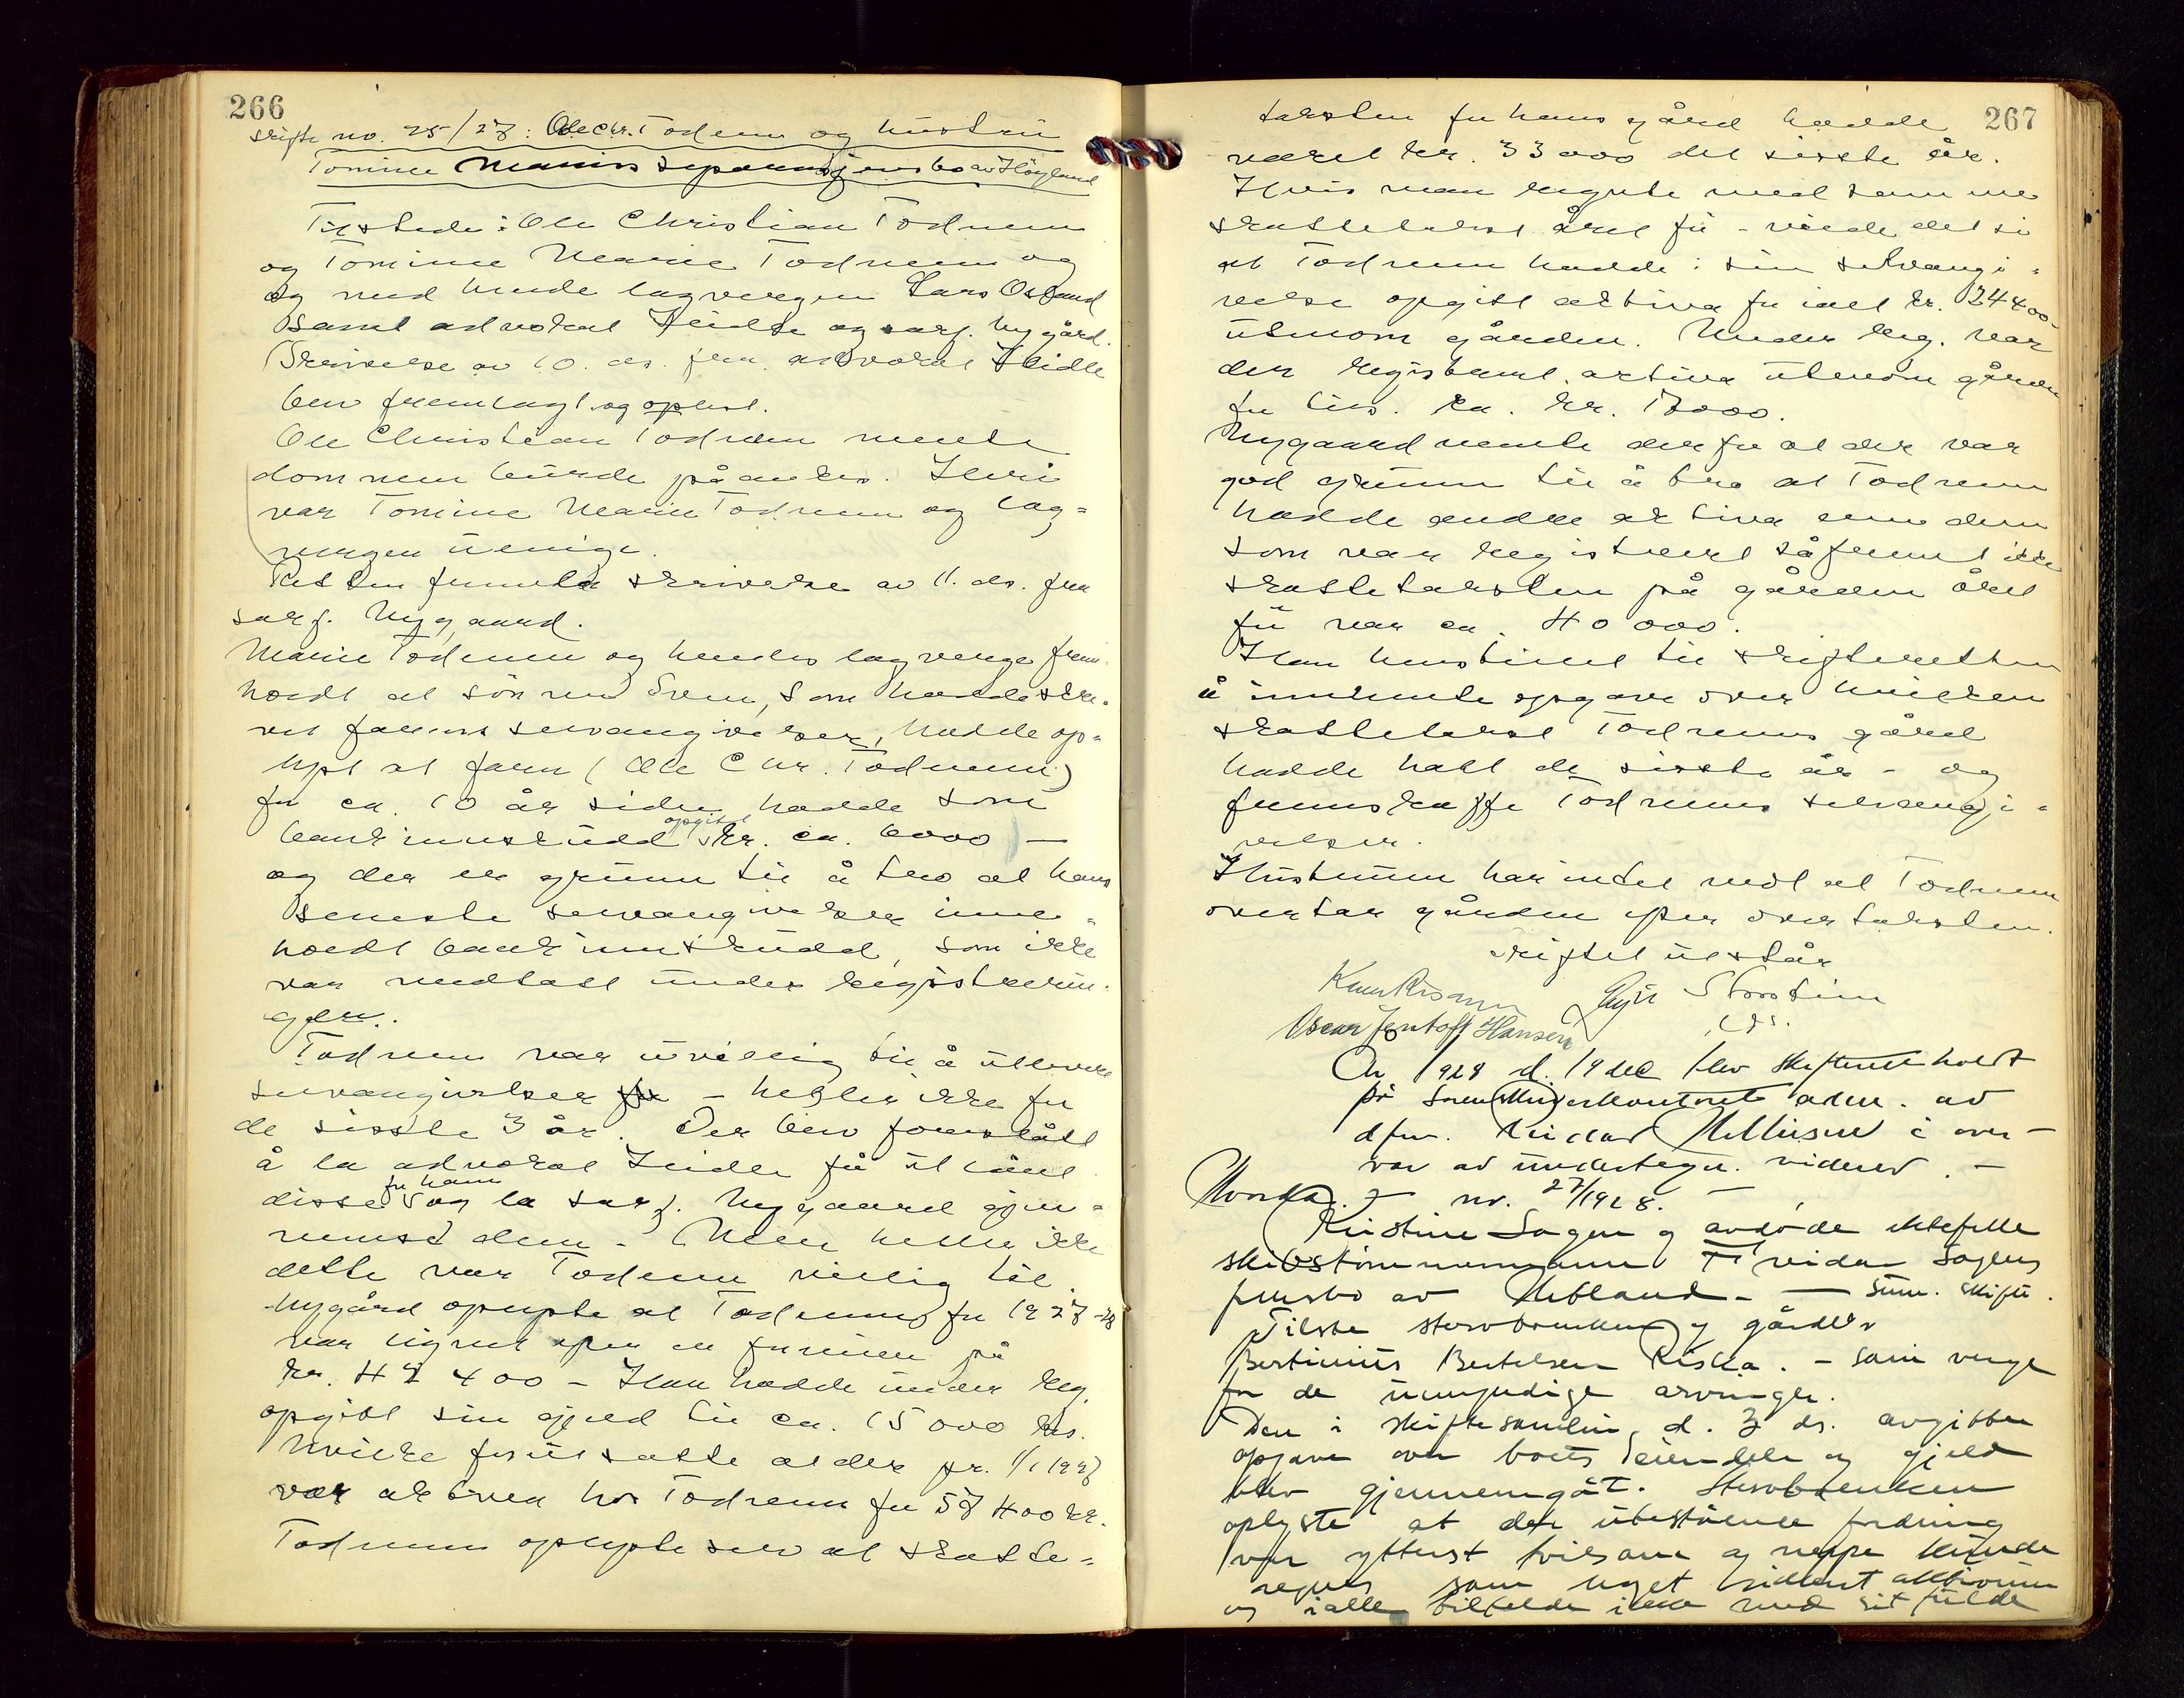 266
Skifte no. 25/27: Ole Chr. Todnem og hustru
Tomine Maries separasjonsbo av Höyland
Tilstede: Ole Christian Todnem
og Tomine Marie Todnem og
og med hende lagvergen Lars Osland
samt advokat Heidle og sakf. Nygård.
Skrivelse av 10. ds. fra advokat Heidle
blev fremlagt og oplest.
Ole Christian Todnem mente
dommen burde påankes. Heri
var Tomine Marie Todnem og lag-
vergen uenige.
Retten fremla skrivelse av 11. ds. fra
sakf. Nygaard.
Marie Todnem og hendes lagverge frem-
holdt at sönnen Sven, som hadde skre-
vet farens selvangivelser, hadde op-
lyst at faren (Ole Chr. Todnem)
for ca. 10 år siden hadde som
bankinnskudd opgitt kr. ca. 6000 —
og der er grunn til å tro at hans
seneste selvangivelser inne-
holdt bankinnskudd, som ikke
var medtatt under registrerin-
gen.
Todnem var uvillig til å utlevere
selvangivelser – heller ikke for
de siste 3 år. Der blev foreslått
å la advokat Heidle få utlånt
disse for ham og la sakf. Nygaard gjen-
nemse dem – Men heller ikke
dette var Todnem villig til.
Nygård oplyste at Todnem for 1927-28
var lignet efter en formue på
kr. 42 400 – Han hadde under reg.
opgitt sin gjeld til ca. 15 000 kr.
hvilke forutsatte at der pr. 1/1 1927
var aktiva hos Todnem for 57 400 kr.
Todnem oplyste selv at skatte-
267
taksten for hans gård hadde
været kr. 33 000 det siste år.
Hvis man regnte med samme
skattetakst året för – vilde det si
at Todnem hadde i sin selvangi-
velse opgitt aktiva for ialt kr. 24 400
utenom gården. Under reg. var
der registrert aktiva utenom gården
for tils. ca. kr. 17000.
Nygaard mente derfor at der var
god grunn til å tro at Todnem
hadde andre aktiva enn dem
som var registrert såfremt ikke
skattetaksten på gården året
för var ca. 40 000.
Han henstillet til skifteretten
å innhente opgave over hvilken
skattetakst Todnems gård
hadde hatt de siste år – og
fremskaffe Todnems selvangi-
velser.
Hustruen har intet mot at Todnem
overtar gården efter overtaksten.
Skiftet utstår
Oscar Jentoft Hansen
År 1928 d. 19 dec blev skifterett holdt
på Sorenskriverkontoret adm. av
dfm. i over-
var av undertegn. vidner. –
no. 27/1928. –
Kristine Sagen og avdøde ektefelle
skibstömmermann Tidar Sagens
fellesbo av Hetland – – Sum. skifte.
Tilstede stervboenken og gårdbr
Bertinius Bertelsen Riska. – som verge
for de umyndige arvinger.
Den i skiftesamling d. 3 ds. avgitte
opgave over boets eiendele og gjeld
blev gjennemgåt. Stervboenken
oplyste at den utestående fordring
var ytterst tvilsom og neppe kunde
regnes som noget sikkert aktivum
og i alle tilfelde ikke med sit fulde